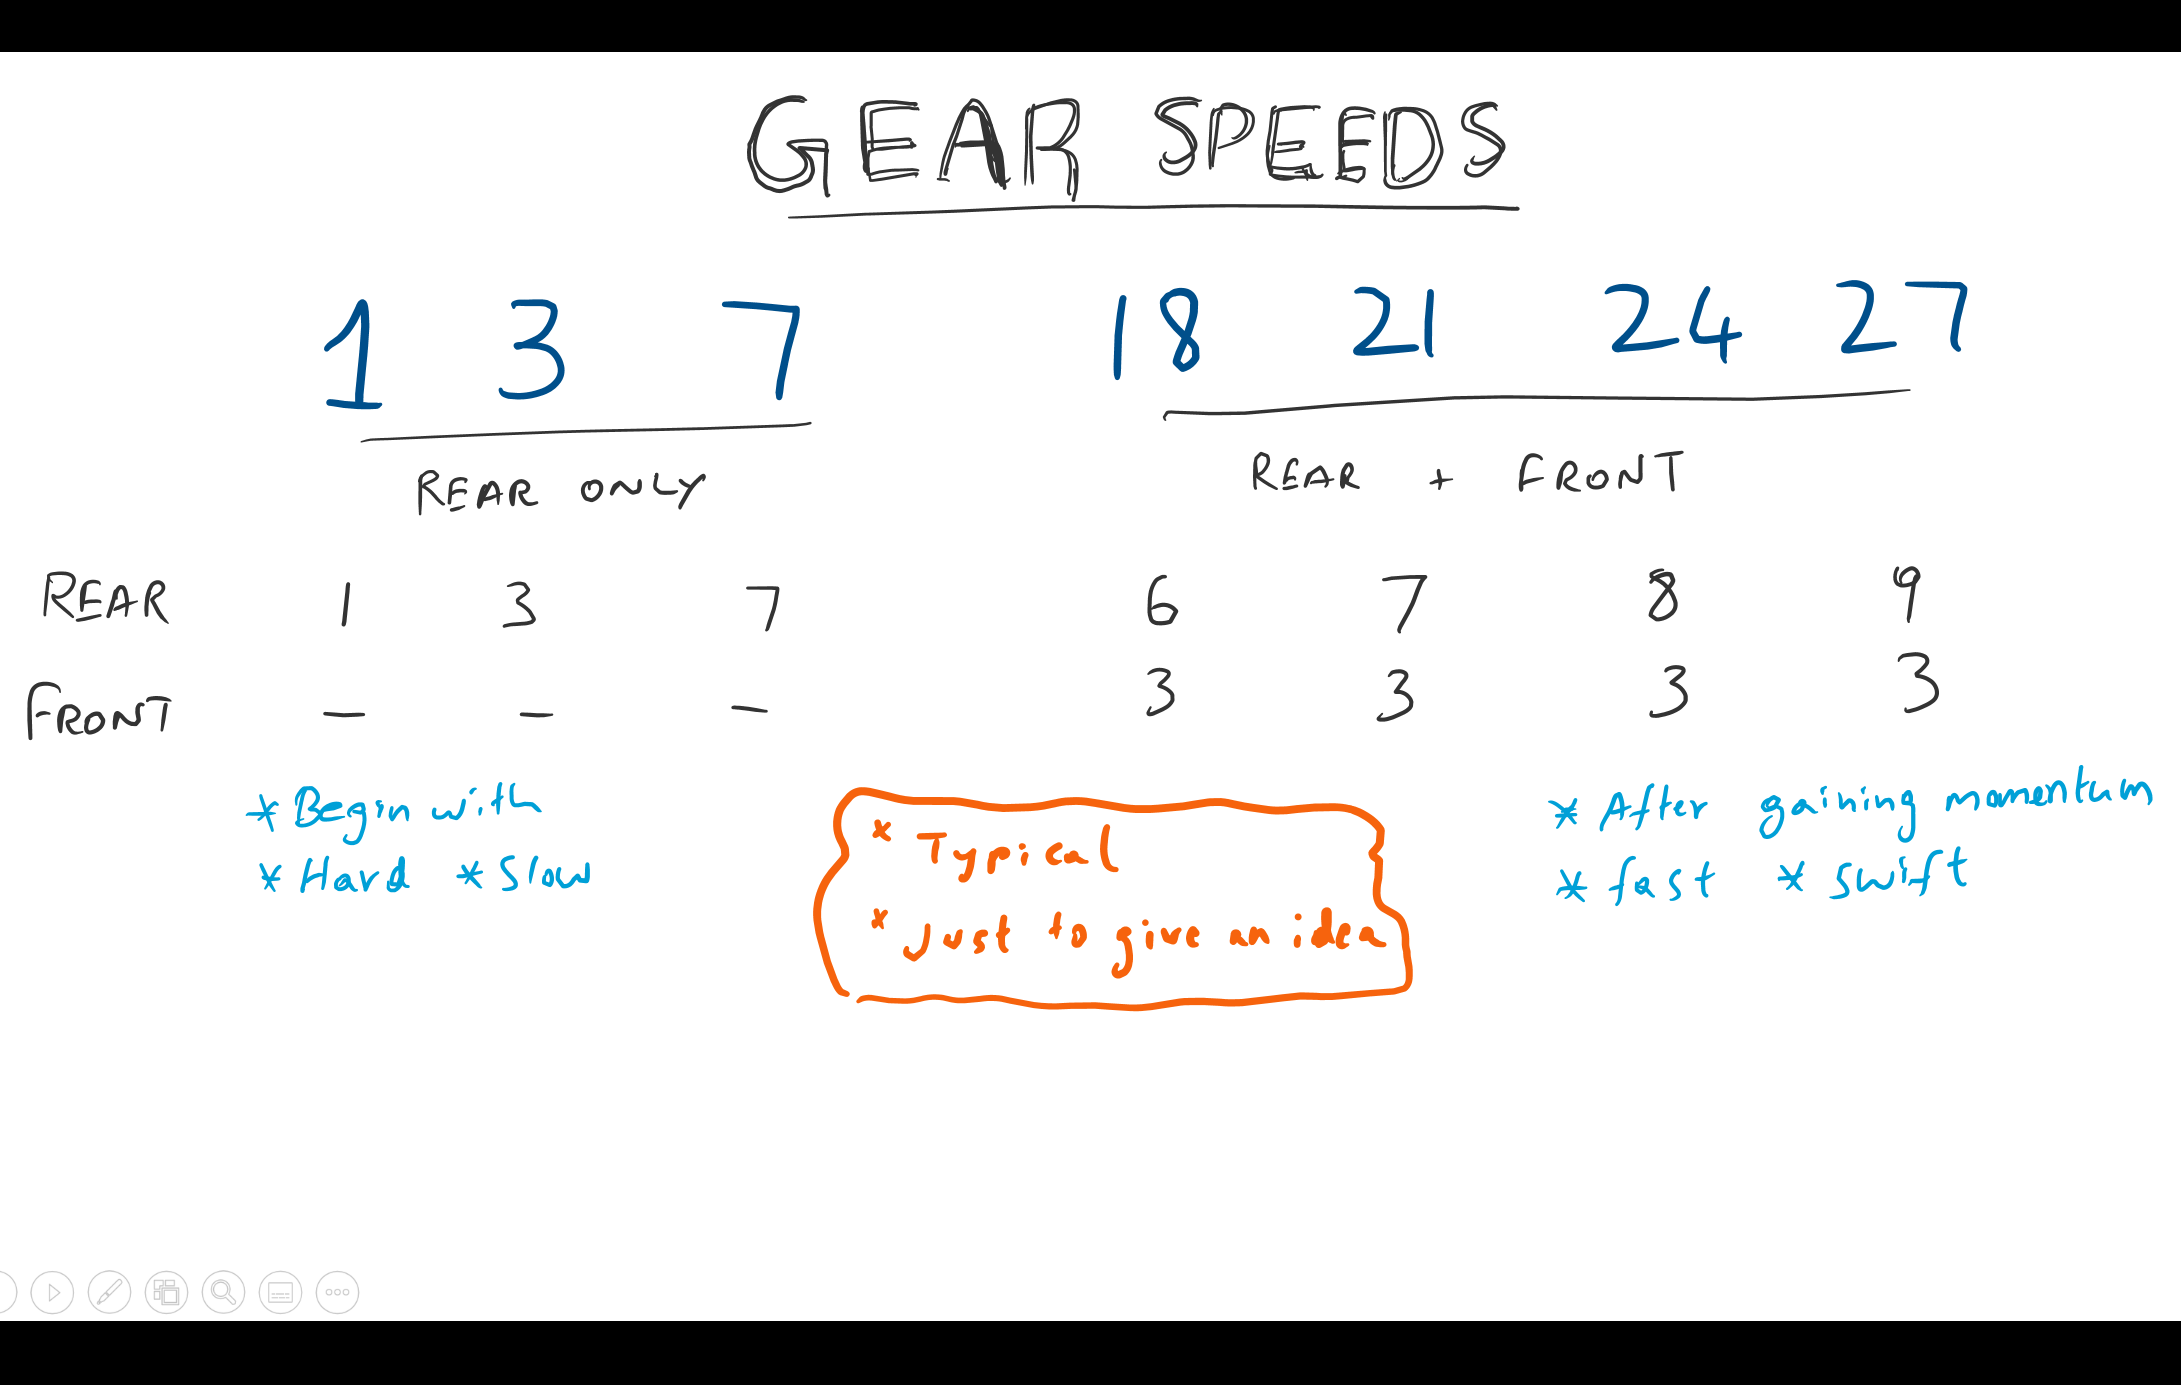 GEAR SPEEDS
1 3 7 18 21 24 27
REAR ONLY REAR + FRONT
REAR 1 3 7 6 7 8 9
FRONT - - - 3 3 3 3
* Begin with
* Hard * Slow
* Typical
* Just to give an idea
* After gaining momentum
* fast * swift